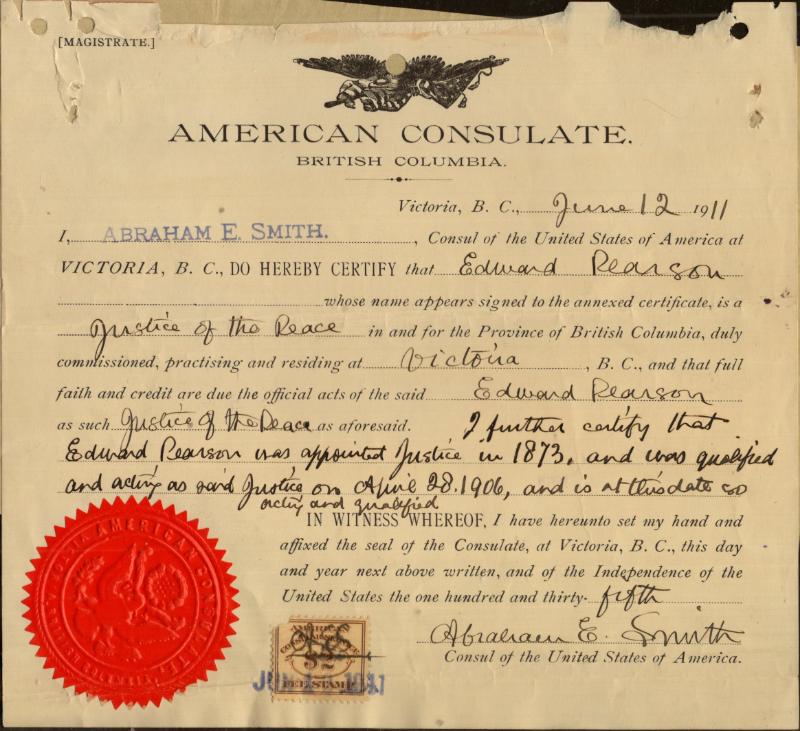 [MAGISTRATE.]
AMERICAN CONSULATE.
BRITISH COLUMBIA.
Victoria, B. C., June 12 1911
I, ABRAHAM E. SMITH. , Consul of the United States of America at
VICTORIA, B. C., DO HEREBY CERTIFY that Edward Pearson
whose name appears signed to the annexed certificate, is a
Justice of the Peace in and for the Province of British Columbia, duly
commissioned, practising and residing at Victoria , B. C., and that full
faith and credit are due the official acts of the said Edward Pearson
as such Justice of the Peace as aforesaid. I further certify that
Edward Pearson was appointed Justice in 1873, and was qualified
and acting as said Justice on April 28. 1906, and is at this date so
acting and qualified
IN WITNESS WHEREOF, I have hereunto set my hand and
affixed the seal of the Consulate, at Victoria, B. C., this day
and year next above written, and of the Independence of the
United States the one hundred and thirty- fifth
Abraham E. Smith
Consul of the United States of America.
AMERICAN
$2
FEE STAMP